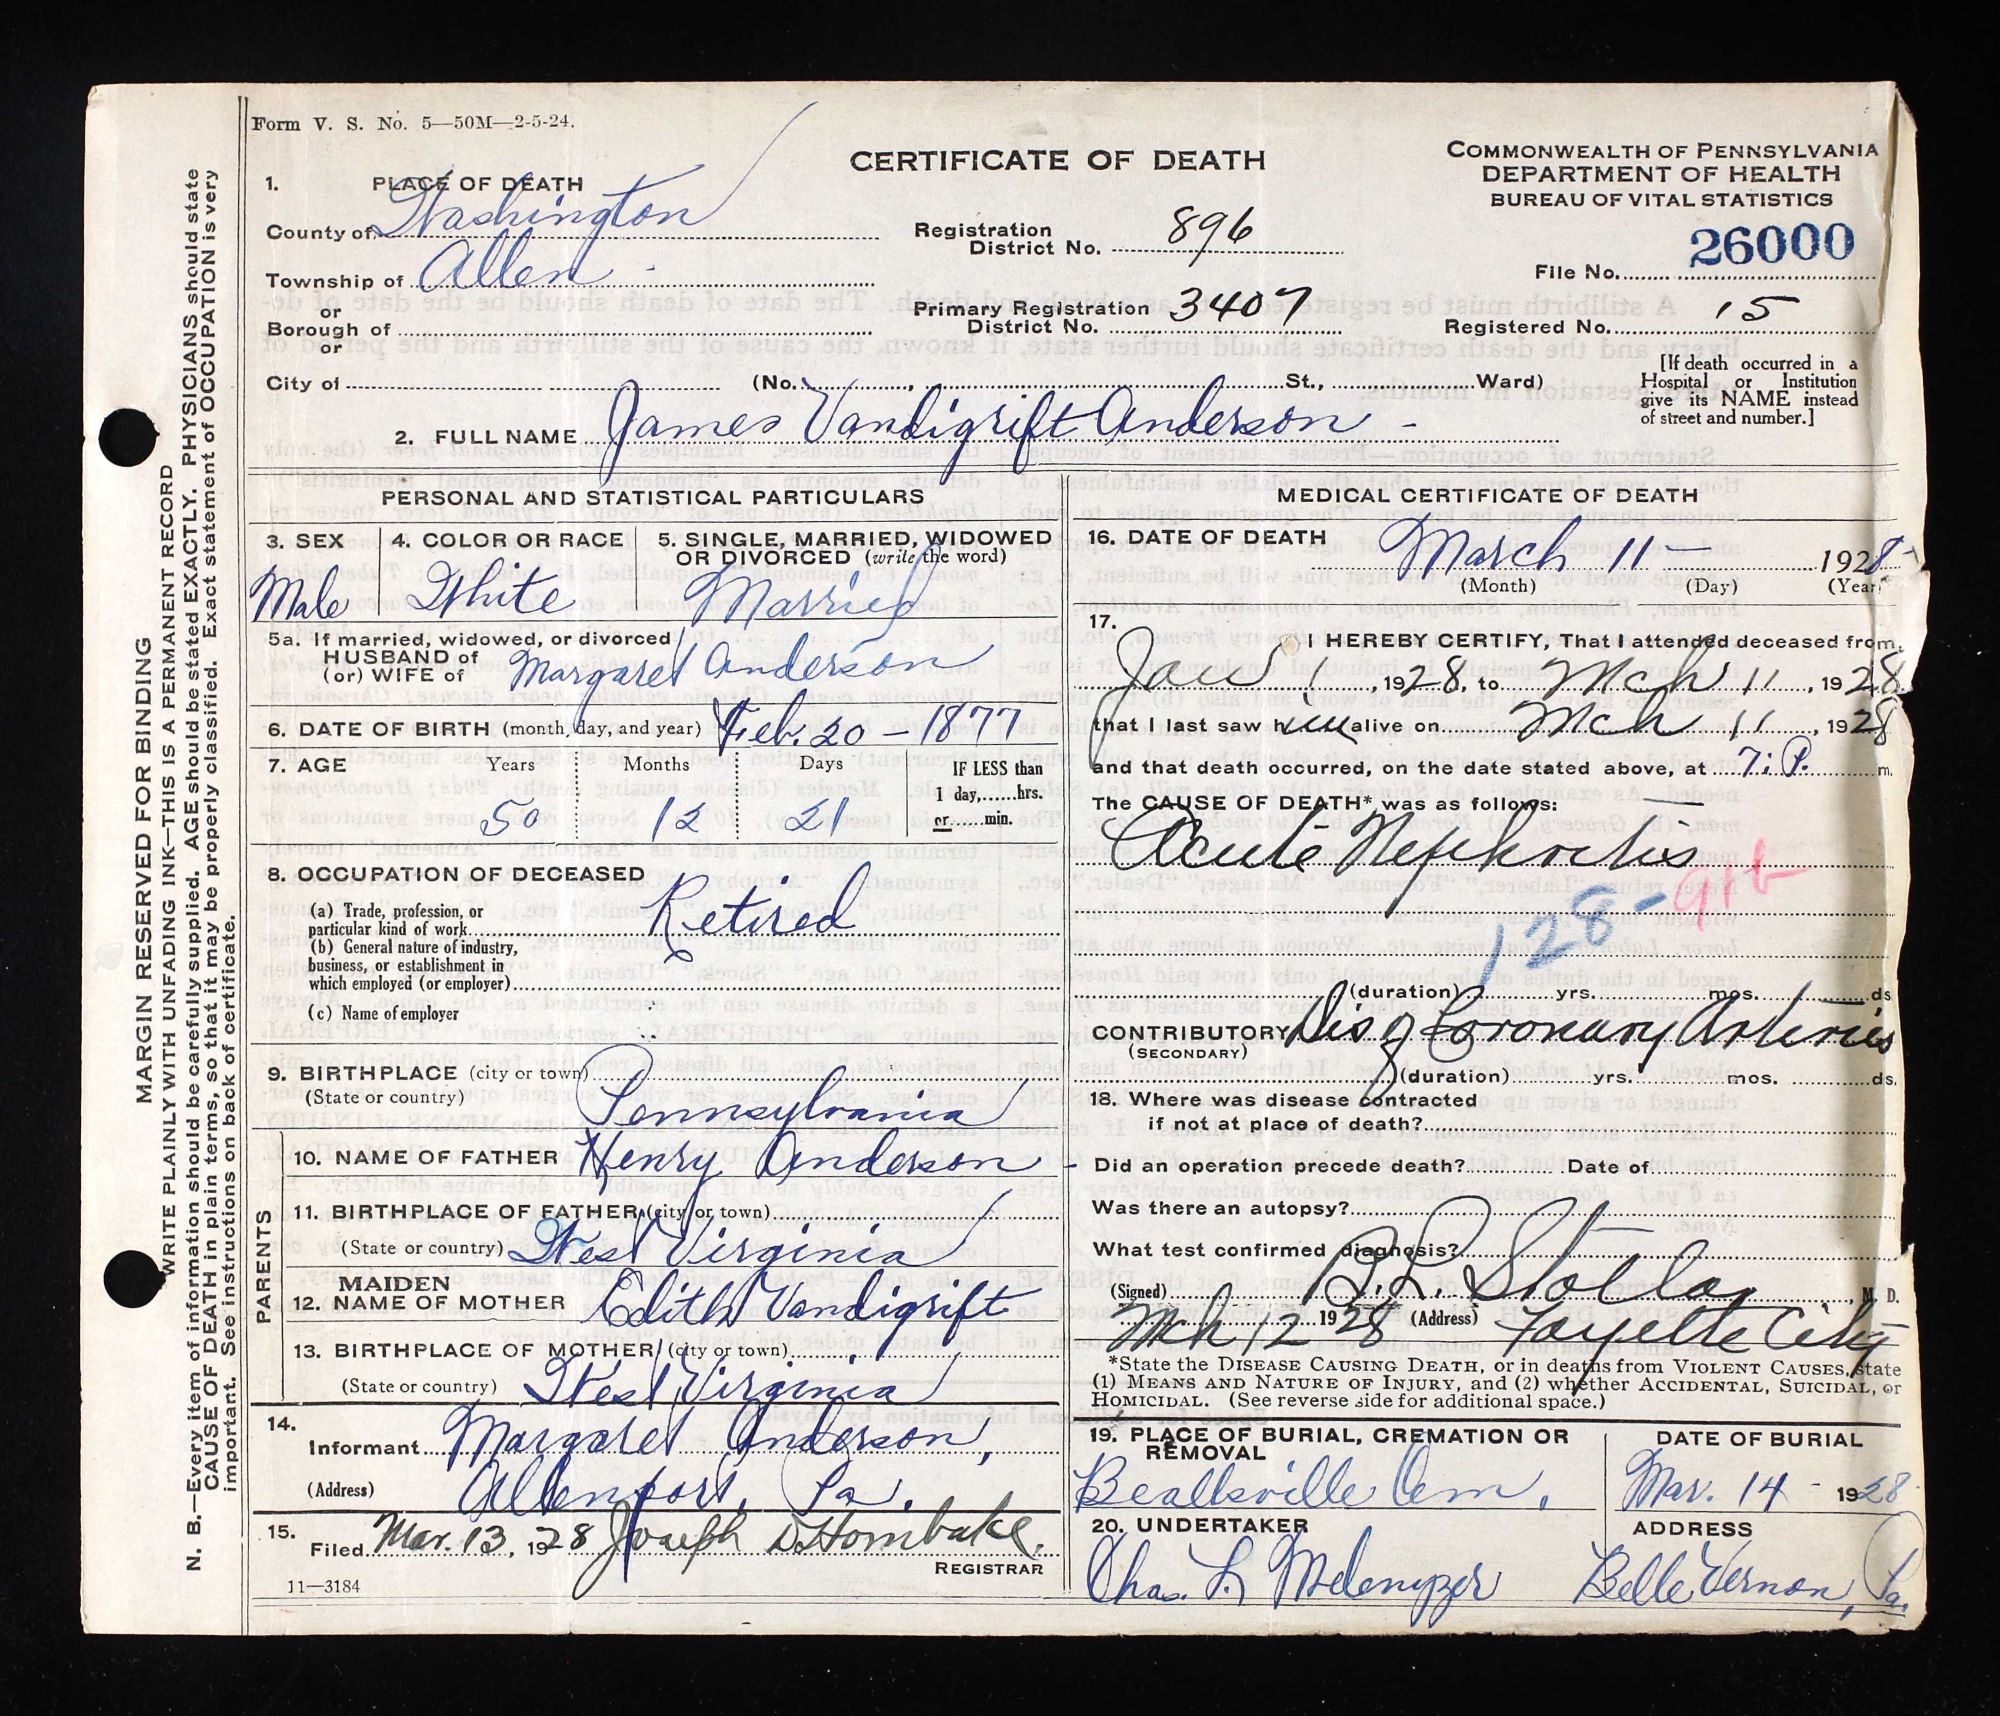 Form V. S. No. 5—50M—2-5-24.
CERTIFICATE OF DEATH
COMMONWEALTH OF PENNSYLVANIA
DEPARTMENT OF HEALTH
BUREAU OF VITAL STATISTICS
1. PLACE OF DEATH
County of Washington
Registration District No. 896
File No. 26000
Township of Allen
or
Borough of
or
Primary Registration District No. 3407
Registered No. 15
City of (No. , St., Ward)
[If death occurred in a
Hospital or Institution
give its NAME instead
of street and number.]
2. FULL NAME James Vandigrift Anderson
PERSONAL AND STATISTICAL PARTICULARS
3. SEX
Male
4. COLOR OR RACE
White
5. SINGLE, MARRIED, WIDOWED
OR DIVORCED (write the word)
Married
5a. If married, widowed, or divorced
HUSBAND of
(or) WIFE of Margaret Anderson
6. DATE OF BIRTH (month, day, and year) Feb. 20 - 1877
7. AGE Years Months Days
50 12 21
IF LESS than
1 day,......hrs.
or......min.
8. OCCUPATION OF DECEASED
(a) Trade, profession, or
particular kind of work Retired
(b) General nature of industry,
business, or establishment in
which employed (or employer)
(c) Name of employer
9. BIRTHPLACE (city or town)
(State or country) Pennsylvania
PARENTS
10. NAME OF FATHER Henry Anderson
11. BIRTHPLACE OF FATHER (city or town)
(State or country) West Virginia
12. MAIDEN NAME OF MOTHER Edith Vandigrift
13. BIRTHPLACE OF MOTHER (city or town)
(State or country) West Virginia
14.
Informant Margaret Anderson,
(Address) Allenport, Pa.
15.
Filed Mar. 13, 1928 Joseph
REGISTRAR
11—3184
MEDICAL CERTIFICATE OF DEATH
16. DATE OF DEATH March 11 1928
(Month) (Day) (Year)
17. I HEREBY CERTIFY, That I attended deceased from
Jan 1, 1928, to Mch 11, 1928
that I last saw him alive on Mch 11, 1928
and that death occurred, on the date stated above, at 7: P. m.
The CAUSE OF DEATH* was as follows:
Acute Nephritis
128- 91b
(duration) yrs. mos. ds
CONTRIBUTORY Dis of Coronary Arteries
(SECONDARY)
(duration) yrs. mos. ds.
18. Where was disease contracted
if not at place of death?
Did an operation precede death? Date of
Was there an autopsy?
What test confirmed diagnosis?
(Signed) , M. D.
Mch 12 1928 (Address) Fayette City
*State the DISEASE CAUSING DEATH, or in deaths from VIOLENT CAUSES, state
(1) MEANS AND NATURE OF INJURY, and (2) whether ACCIDENTAL, SUICIDAL, or
HOMICIDAL. (See reverse side for additional space.)
19. PLACE OF BURIAL, CREMATION OR
REMOVAL
Beallsville Cem.
DATE OF BURIAL
Mar. 14 1928
20. UNDERTAKER
Chas.
ADDRESS
Belle Vernon, Pa.
MARGIN RESERVED FOR BINDING
WRITE PLAINLY WITH UNFADING INK—THIS IS A PERMANENT RECORD
N. B.—Every item of information should be carefully supplied. AGE should be stated EXACTLY. PHYSICIANS should state
CAUSE OF DEATH in plain terms, so that it may be properly classified. Exact statement of OCCUPATION is very
important. See instructions on back of certificate.